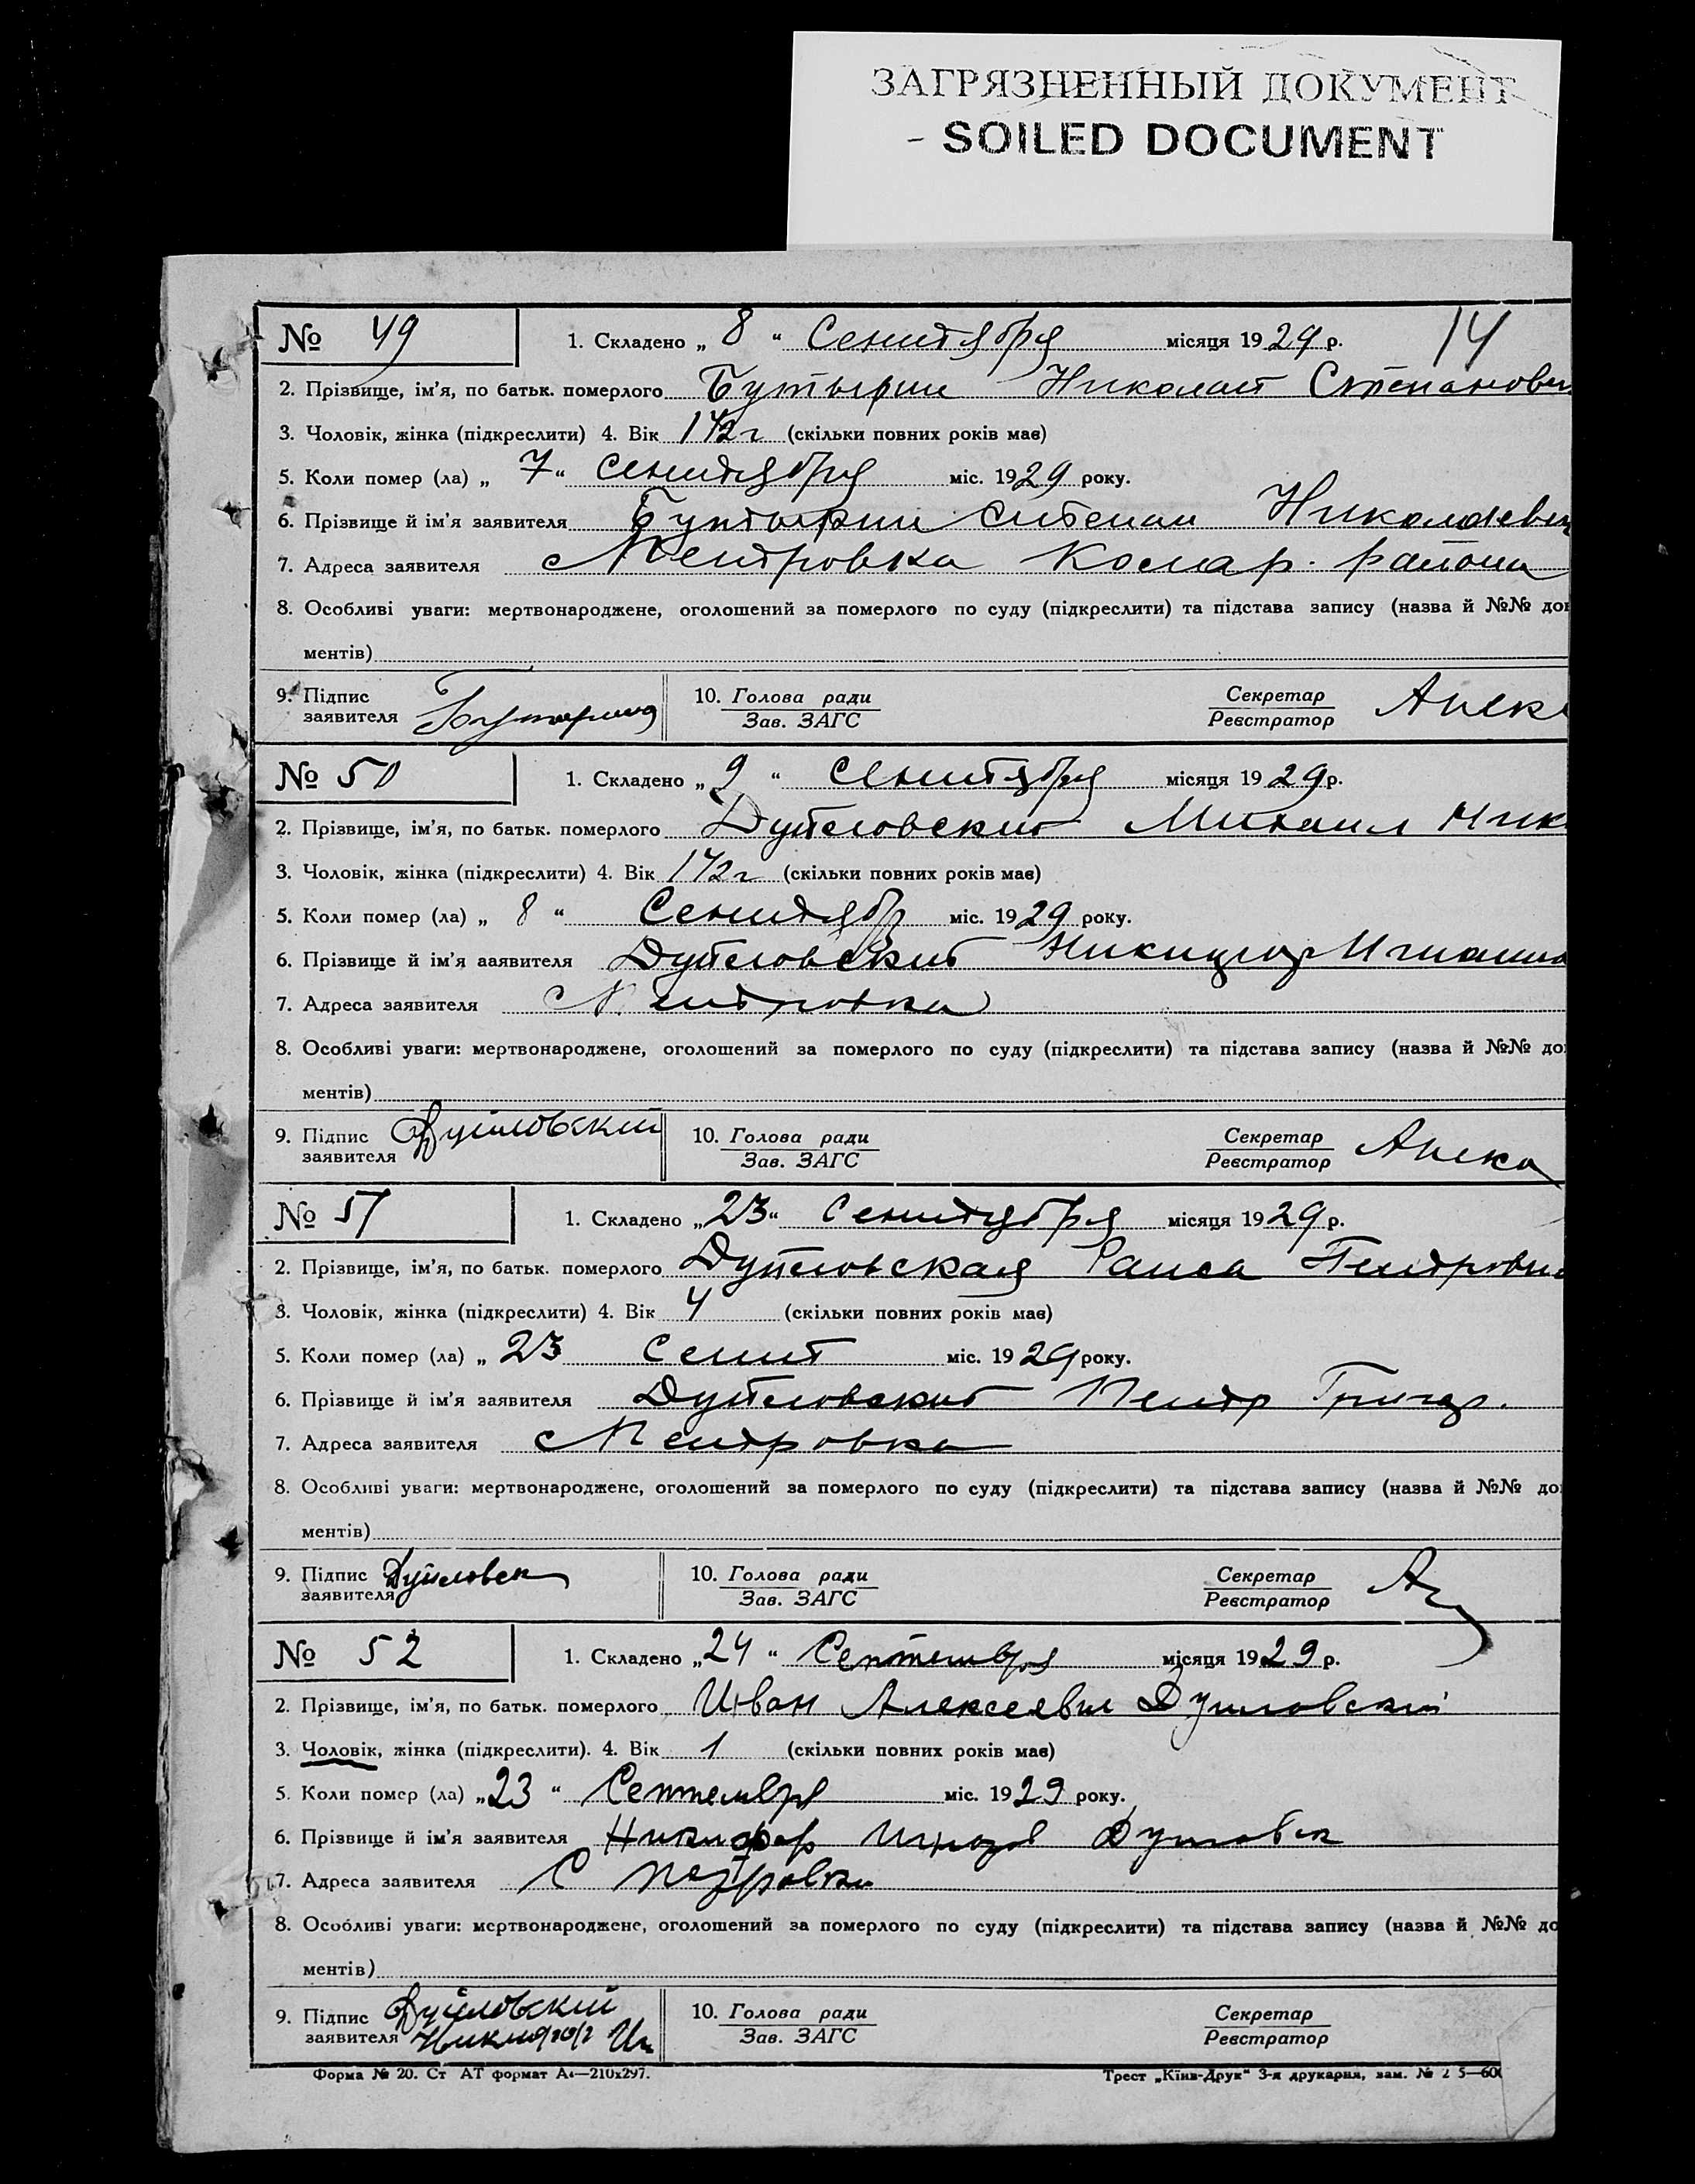 ЗАГРЯЗНЕННЫЙ ДОКУМЕНТ
- SOILED DOCUMENT
№ 49 1. Складено „ 8 “ Сентября місяця 1929 р. 14
2. Прізвище, ім’я, по батьк. померлого Бутырин Николай Степанович
3. Чоловік, жінка (підкреслити) 4. Вік 1 1/2 г (скільки повних років має)
5. Коли помер (ла) „ 7 “ Сентября міс. 1929 року.
6. Прізвище й ім’я заявителя Бутырин Степан Николаевич
7. Адреса заявителя с Петровка Комар. района
8. Особливі уваги: мертвонароджене, оголошений за померлого по суду (підкреслити) та підстава запису (назва й №№ док
ментів)
9. Підпис заявителя 10. Голова ради Зав. ЗАГС Секретар Реєстратор
№ 50 1. Складено „ 9 “ Сентября місяця 1929 р.
2. Прізвище, ім’я, по батьк. померлого Михаил Ник
3. Чоловік, жінка (підкреслити) 4. Вік 1 1/2 г (скільки повних років має)
5. Коли помер (ла) „ 8 “ Сентябр міс. 1929 року.
6. Прізвище й ім’я заявителя
7. Адреса заявителя с Петровка
8. Особливі уваги: мертвонароджене, оголошений за померлого по суду (підкреслити) та підстава запису (назва й №№ до
ментів)
9. Підпис заявителя 10. Голова ради Зав. ЗАГС Секретар Реєстратор
№ 51 1. Складено „ 23 “ Сентября місяця 1929 р.
2. Прізвище, ім’я, по батьк. померлого Раиса Петровна
3. Чоловік, жінка (підкреслити) 4. Вік 4 (скільки повних років має)
5. Коли помер (ла) „ 23 Сент міс. 1929 року.
6. Прізвище й ім’я заявителя Петр Григор.
7. Адреса заявителя с Петровка
8. Особливі уваги: мертвонароджене, оголошений за померлого по суду (підкреслити) та підстава запису (назва й №№ до
ментів)
9. Підпис заявителя 10. Голова ради Зав. ЗАГС Секретар Реєстратор
№ 52 1. Складено „ 24 “ Септембря місяця 1929 р.
2. Прізвище, ім’я, по батьк. померлого Иван Алексеевич
3. Чоловік, жінка (підкреслити). 4. Вік 1 (скільки повних років має)
5. Коли помер (ла) „ 23 “ Септембря міс. 1929 року.
6. Прізвище й ім’я заявителя Никифор
7. Адреса заявителя С Петровки
8. Особливі уваги: мертвонароджене, оголошений за померлого по суду (підкреслити) та підстава запису (назва й №№ до
ментів)
9. Підпис заявителя 10. Голова ради Зав. ЗАГС Секретар Реєстратор
Форма № 20. Ст АТ формат А4—210x297. Трест „Київ-Друк“ 3-я друкарня, зам. №